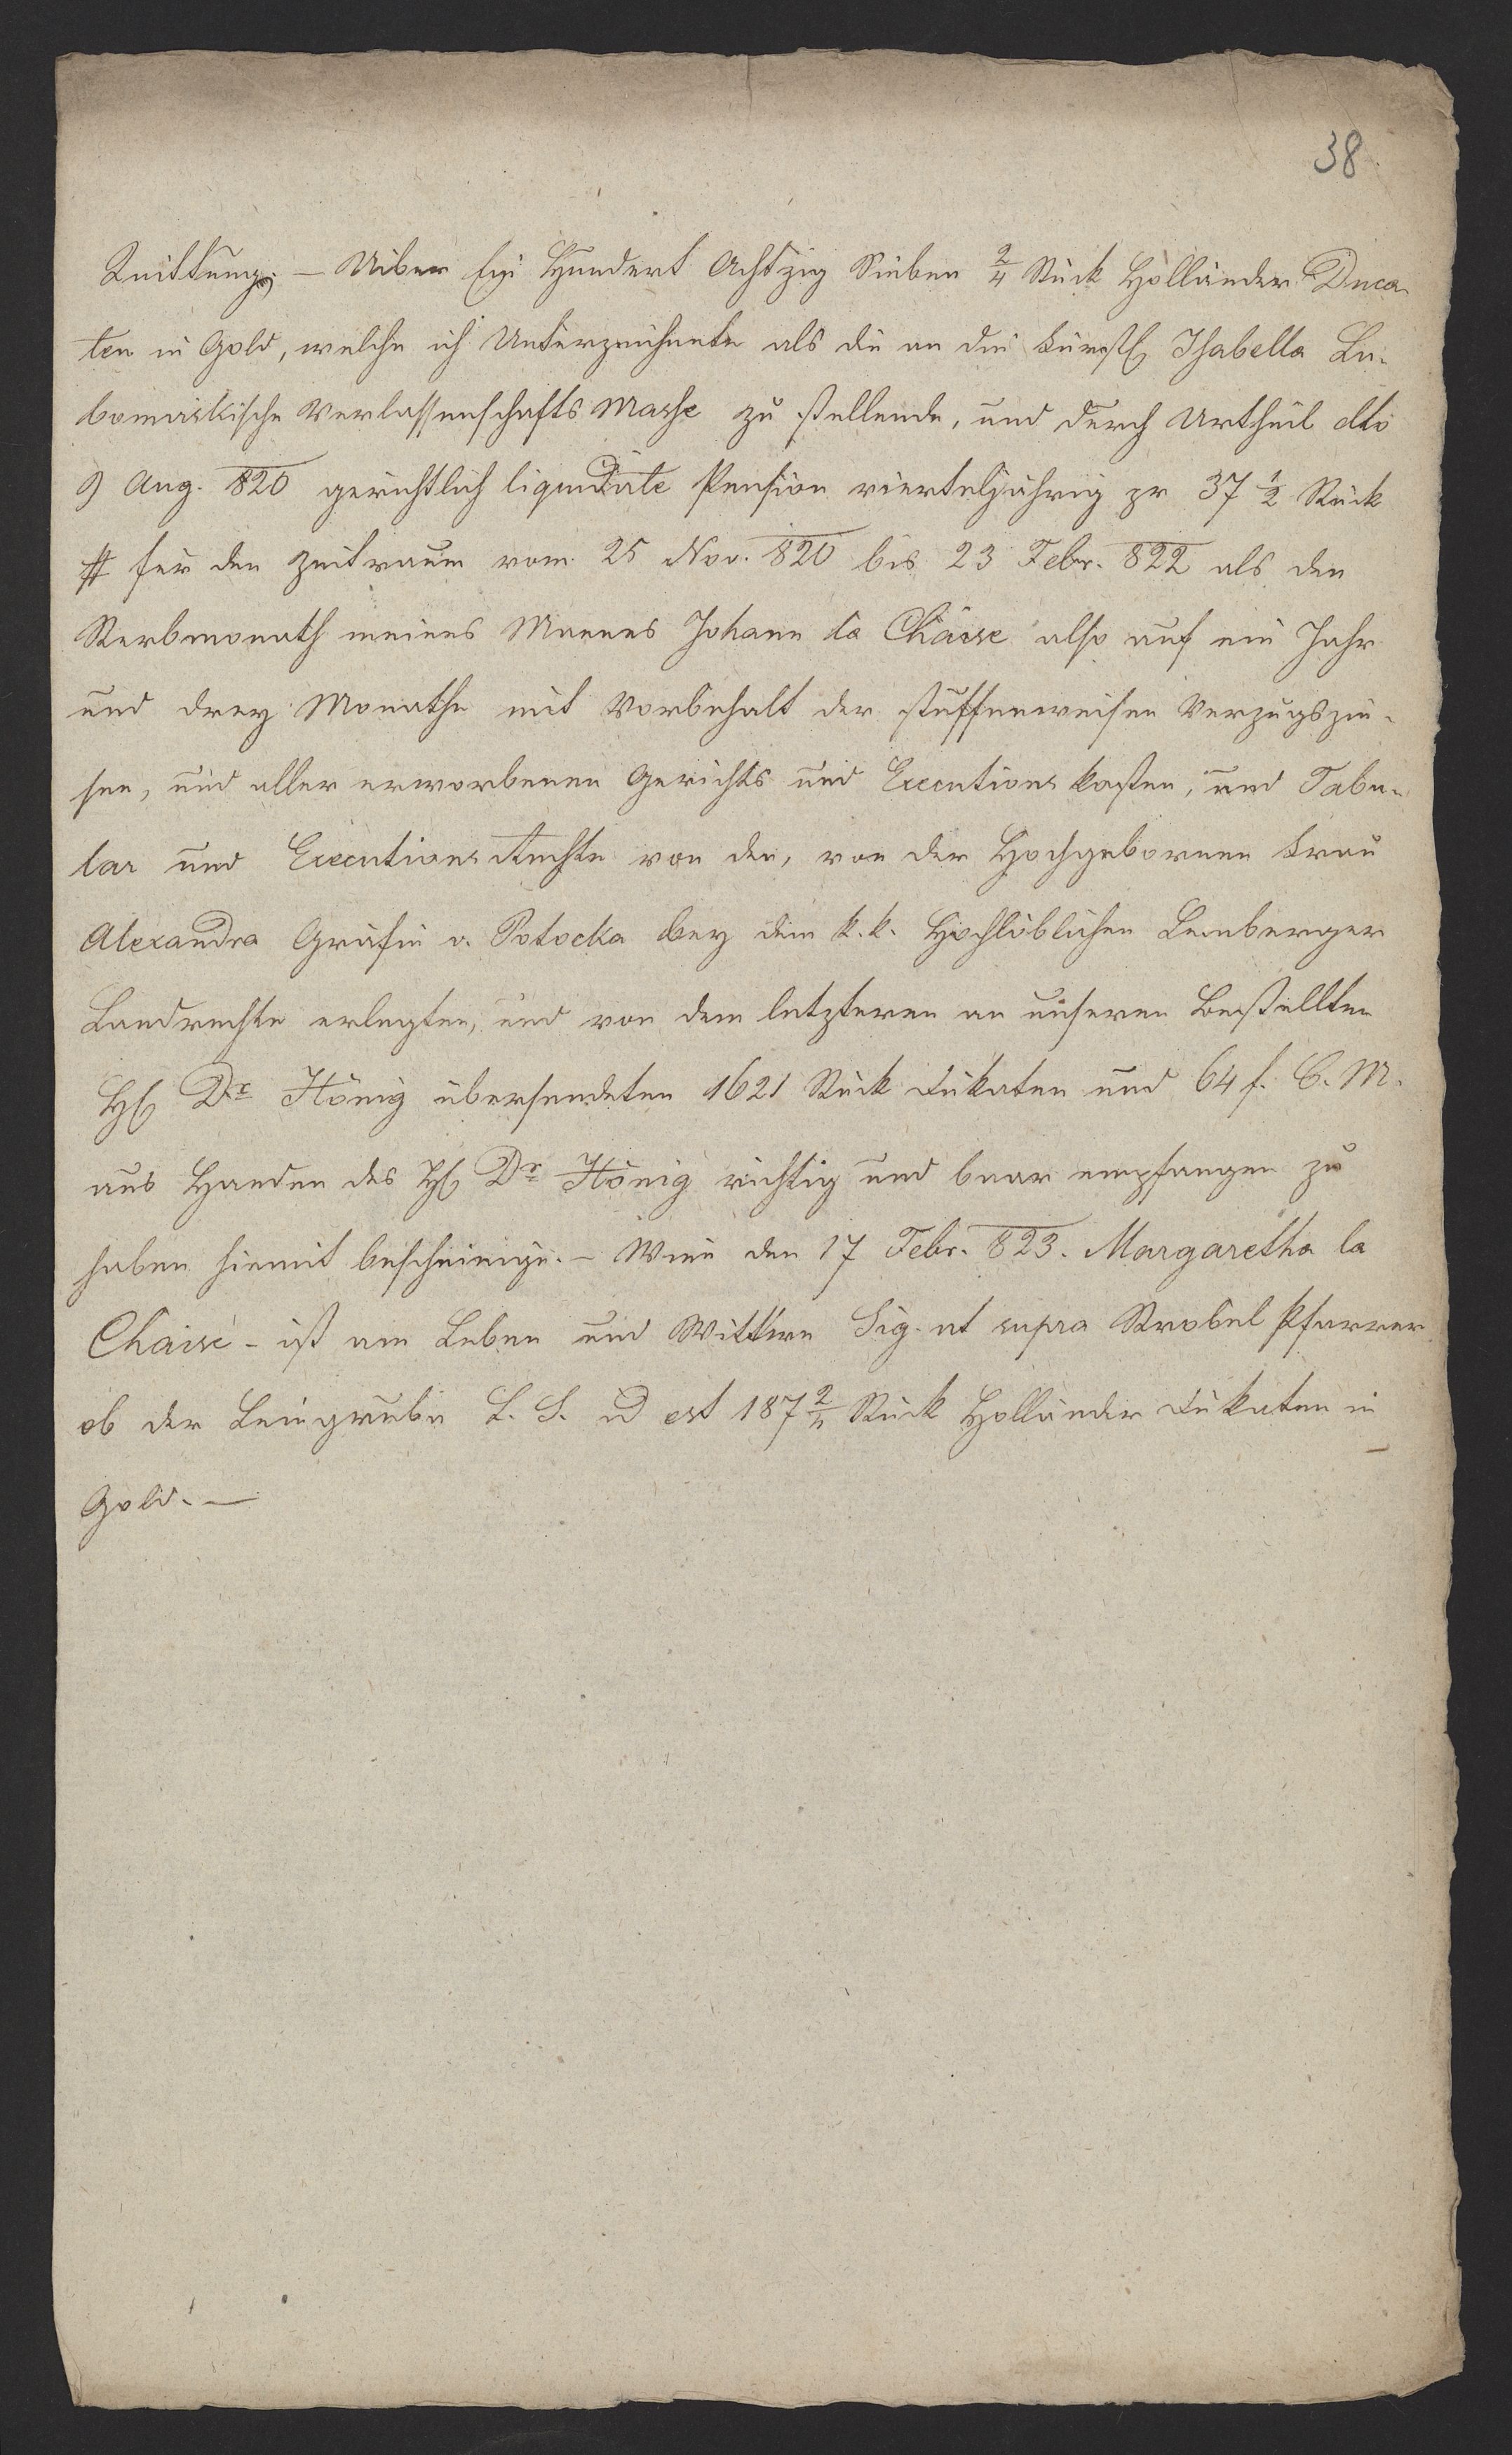 38
Quittung. — Uiber Ein Hundert Achtzig Sieben 2/4 Stück Holländer Duca-
ten in Gold, welche ich Unterzeichnete als die an die Fürstl Isabella Lu-
bomirskische Verlassenschafts Masse zu stellende, und durch Urtheil dto
9 Aug. 820 gerichtlich liquidirte Pension vierteljährig pr 37 1/2 Stück
# für den Zeitraum vom 25 Nov. 820 bis 23 Febr. 822 als den
Sterbmonath meines Mannes Johann la Chaise also auf ein Jahr
und drey Monathe mit Vorbehalt der stuffenweisen Verzugszin-
sen, und aller erworbenen Gerichts und Executions kosten, und Tabu-
lar und Executions Rechte von den, von der Hochgebornen Frau
Alexandra Gräfin v. Potocka bey dem k. k. Hochlöblichen Lemberger
Landrechte erlegten, und von dem letzteren an unseren Bestellten
H Dr König übersendeten 1621 Stück Dukaten und 64 f. C. M.
aus Handen des H Dr König richtig und baar empfangen zu
haben hiemit bescheinige. – Wien den 17 Febr. 823. Margaretha la
Chaise – ist am Leben und Wittwe Sig. ut supra Strobel Pfarrer
ob der Leimgrube L. S. id est 187 2/4 Stück Holländer Dukaten in
Gold. —